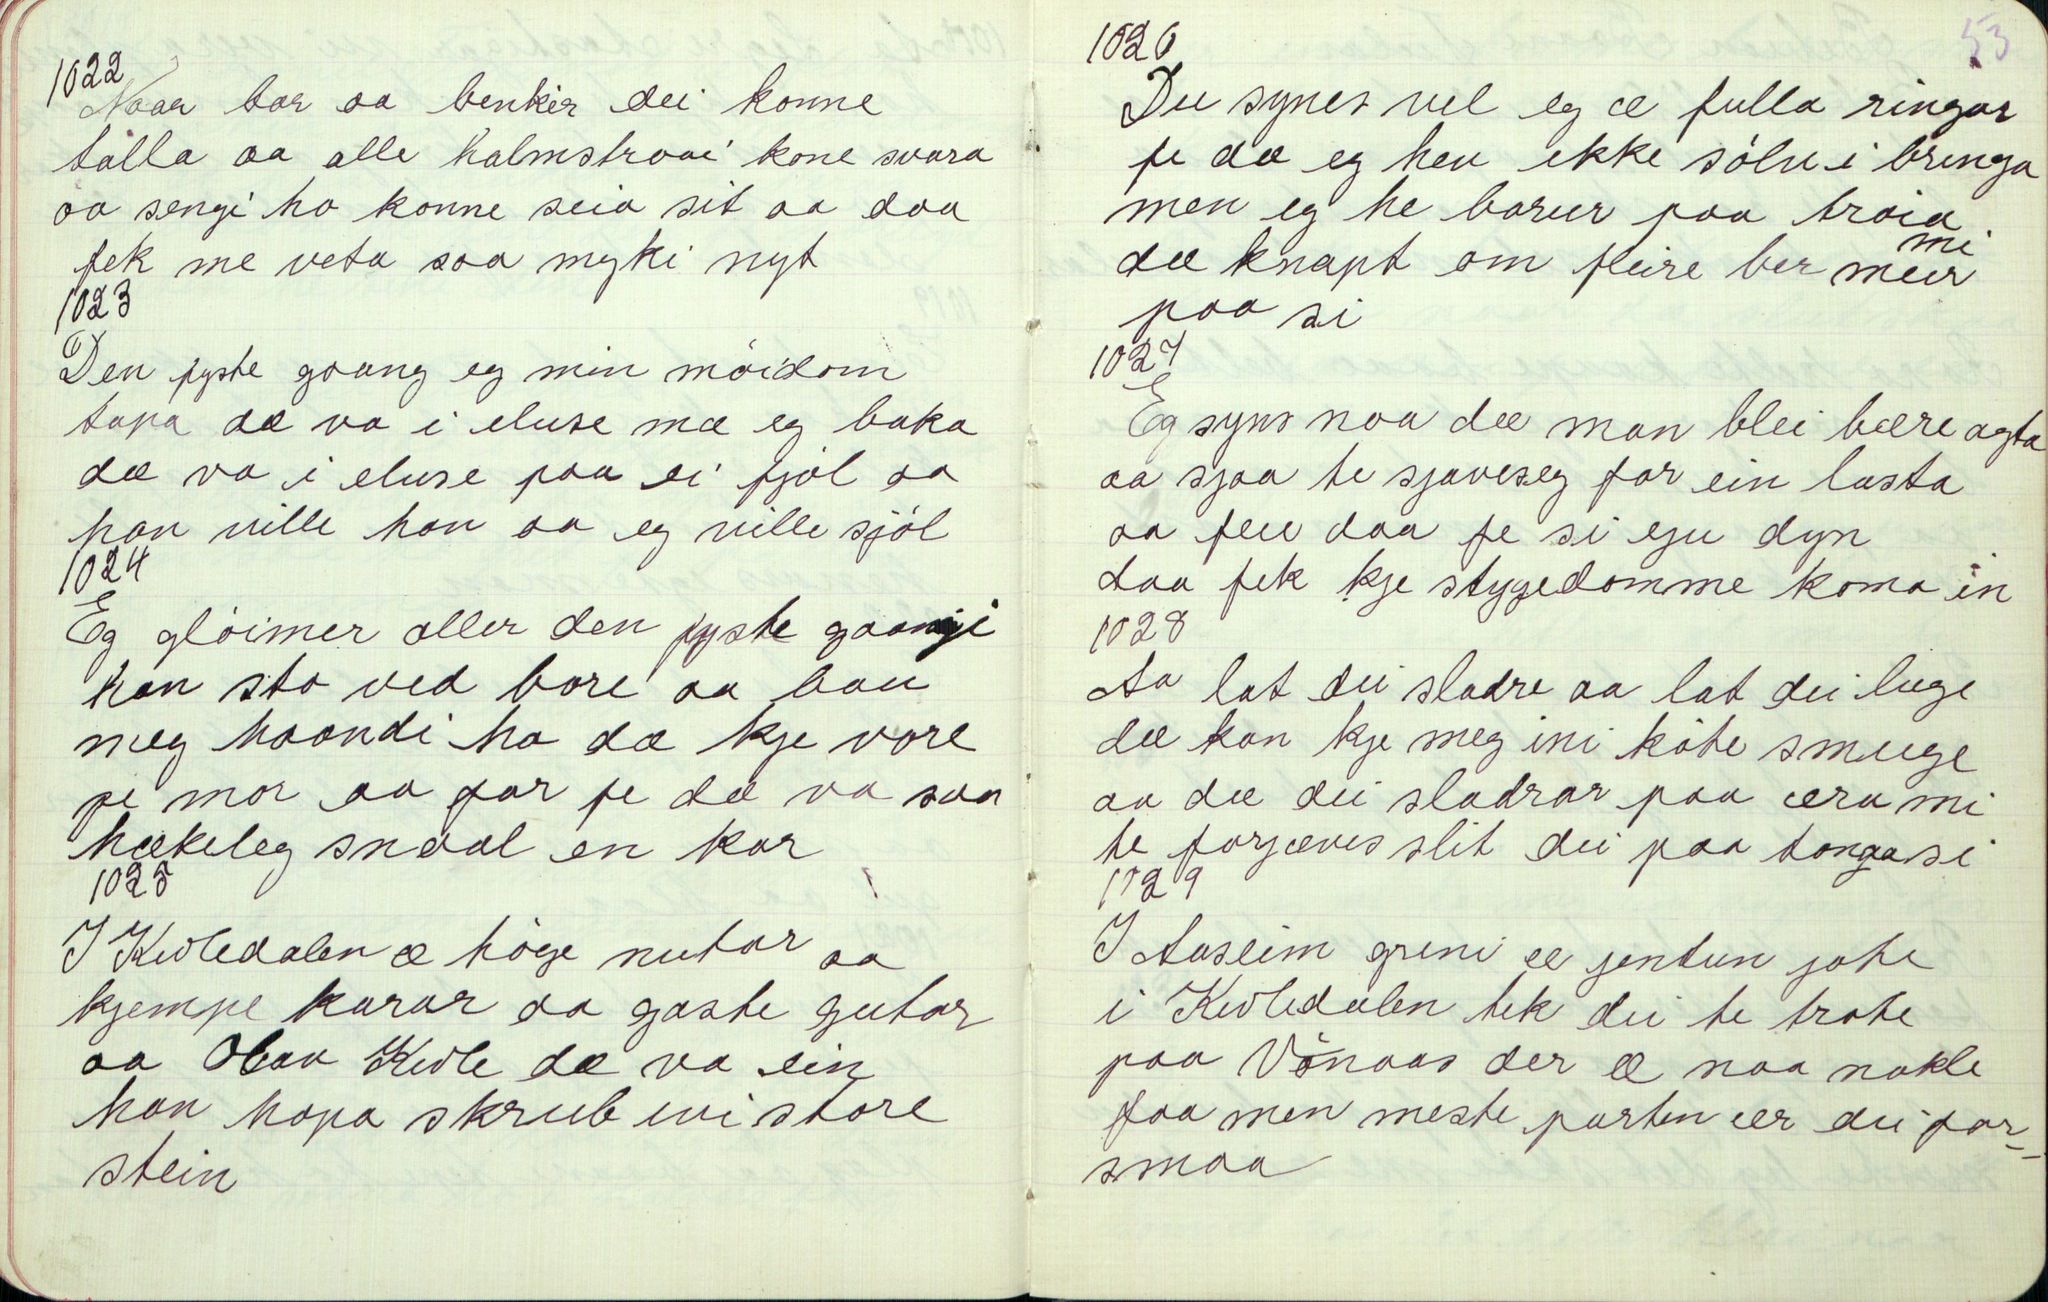 1022
Naar bor aa benkir dei konne
talla aa alle halmstraai kone svara
aa sengi ho konne seia sit aa daa
fek me veta saa myki nyt
1023
Den fyste gaang eg min möidom
tapa dæ va i eluse mæ eg baka
dæ va i eluse paa ei fjöl aa
han ville han aa eg ville sjöl
1024
Eg glöimer aller den fyste gaangi
han sto ved bore aa bau
meg haandi ha dæ kje vore
fe mor aa far fe dæ va saa
hækeleg snaal en kar
1025
I Kivledalen æ höge nutar aa
kjempe karar aa gaste gutar
aa Olav Kivle dæ va ein
han hopa skrub uvi store
stein
53
1026
Du synes vel eg æ fulla ringar
fe dæ eg hev ikke sölv i bringa
men eg he borur paa troia
mi
dæ knapt om fleire ber meir
paa si
1027
Eg syns naa dæ man blei bære agta
aa sjaa te sjaveseg for ein lasta
aa feu daa fe si egu dyn
daa fek kje stygedomme koma in
1028
Aa lat dei sladre aa lat dei luge
dæ kan kje meg ini köte smuge
aa dæ dei sladrar paa æra mi
te forjæves slit dei paa tonga si
1029
I Aaseim greni æ jentun jote
i Kivledalen tek dei te trote
paa Vönaas der æ naa nokle
faa men meste parten ær dei for-
smaa